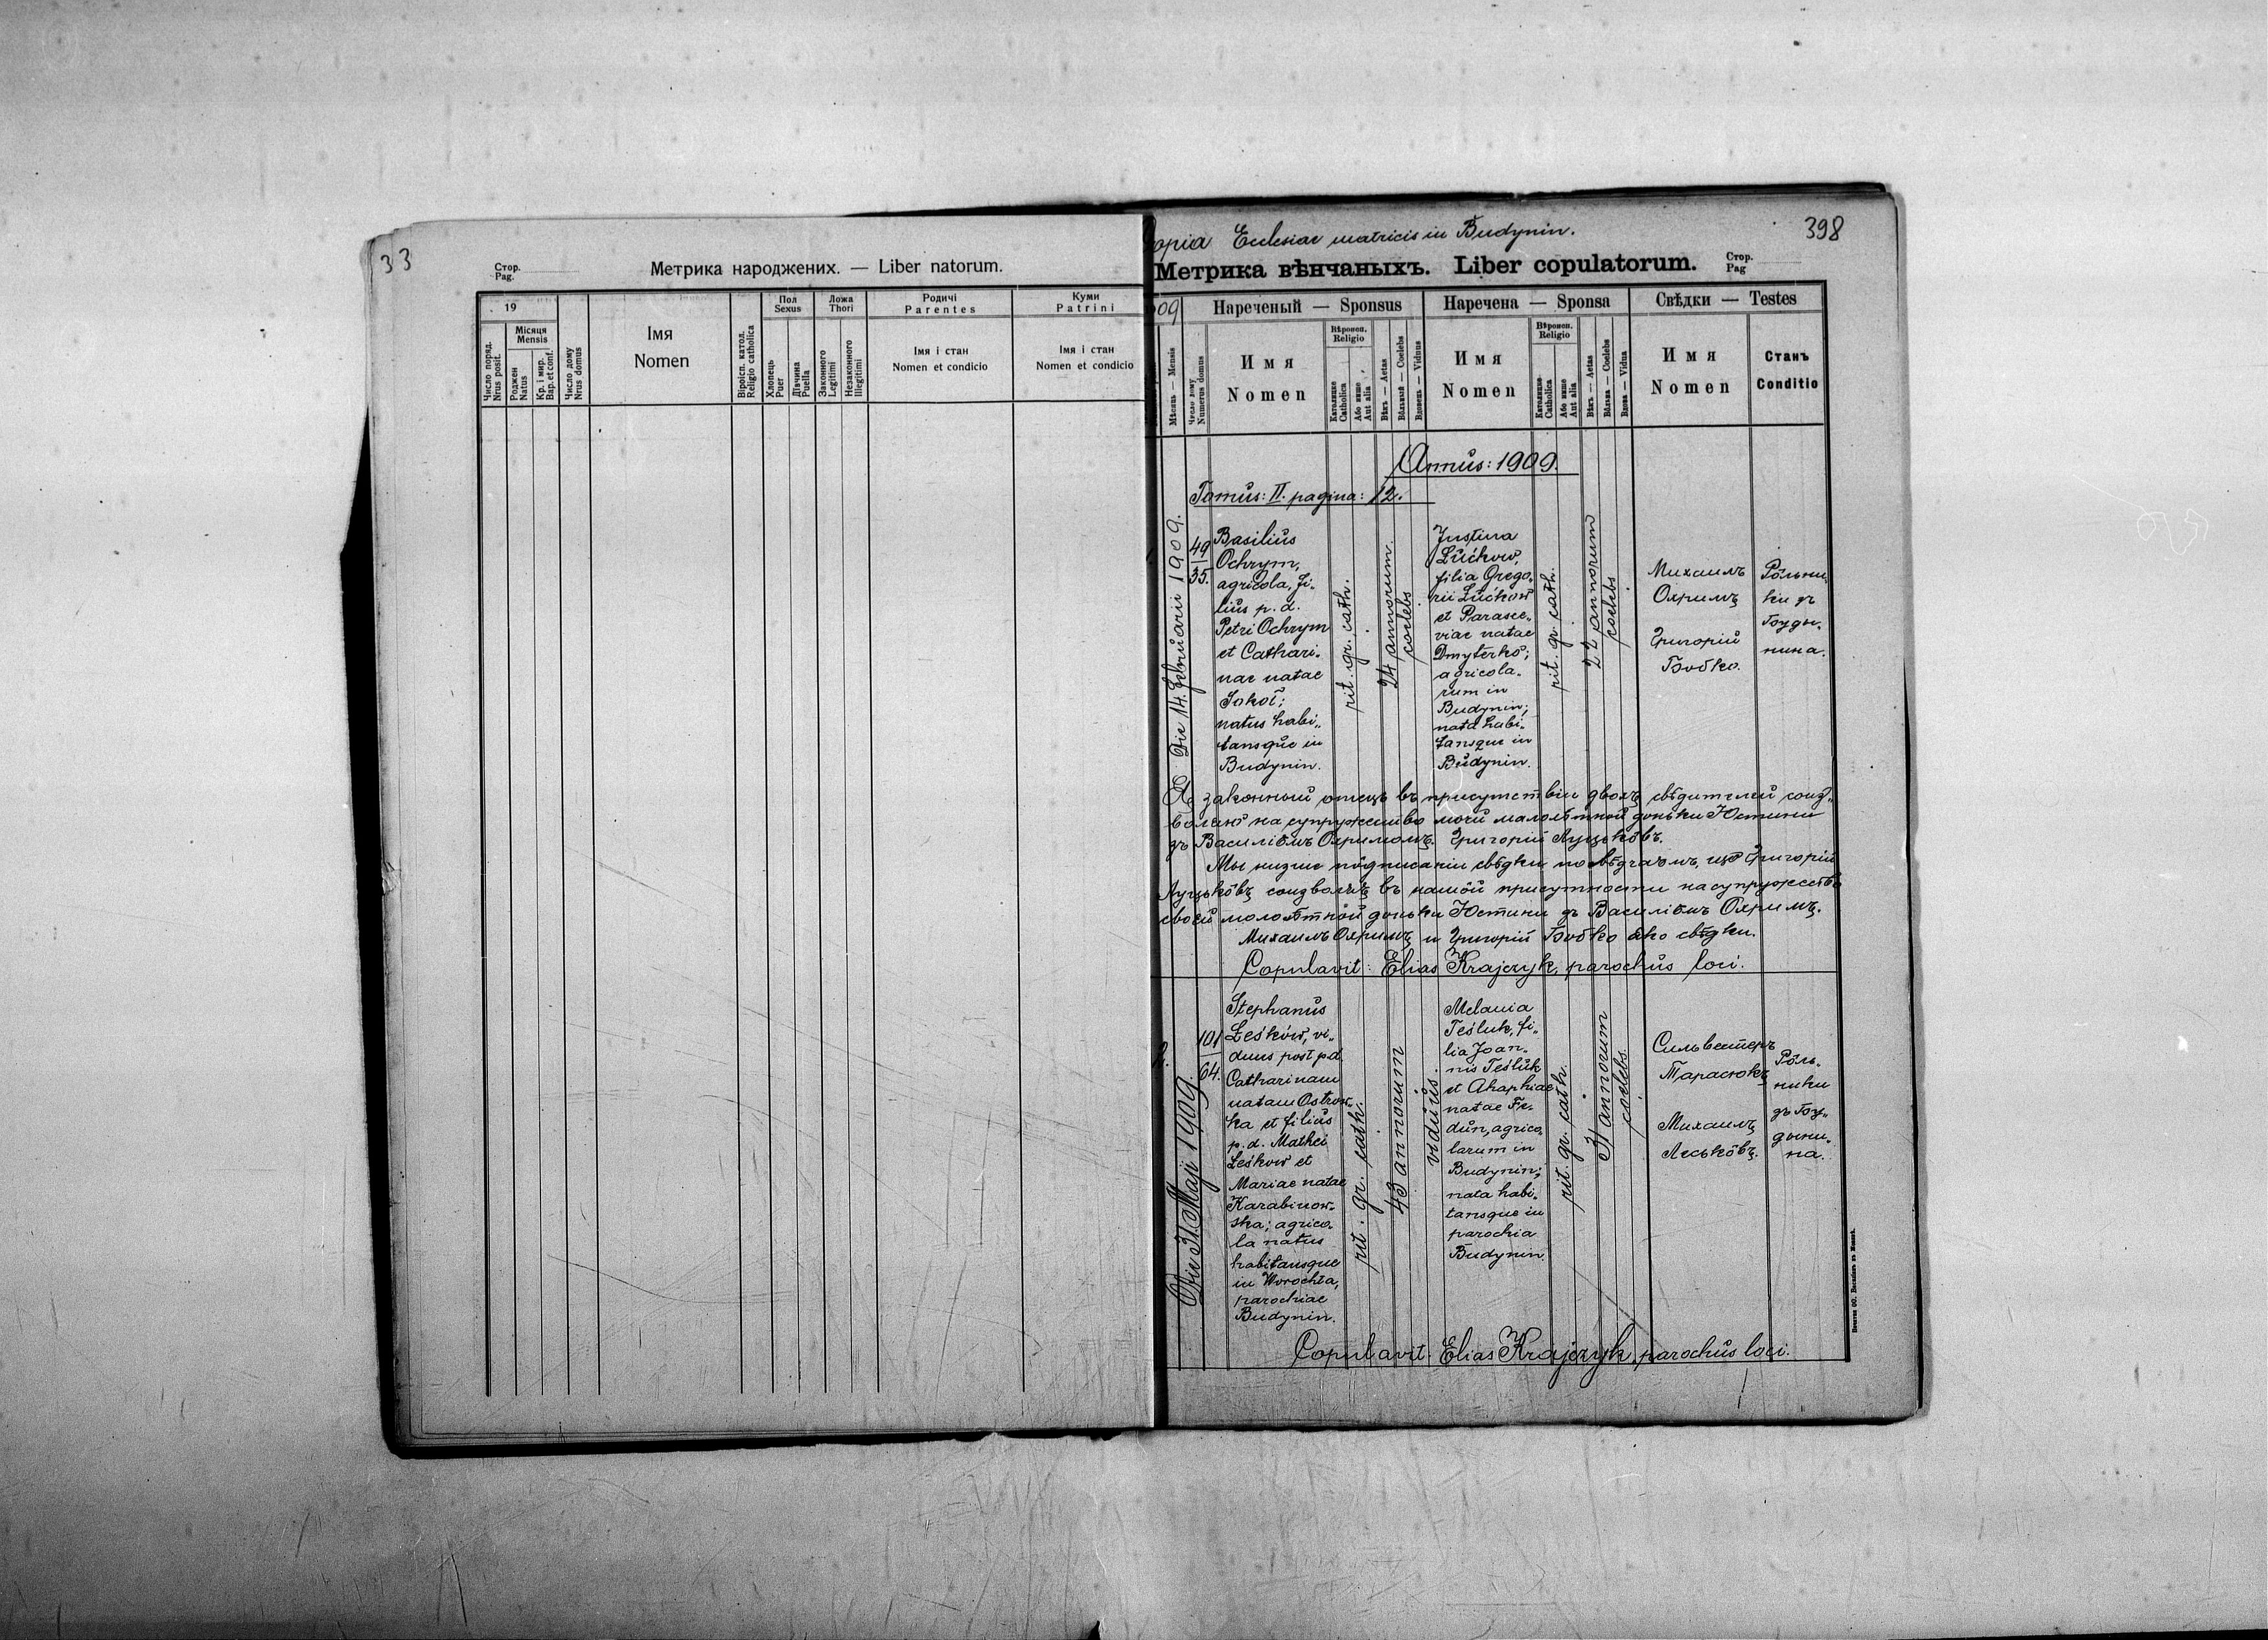 33
Стор.
Pag.
Метрика народжених. — Liber natorum.
19
Число поряд.
Nrus posit.
Місяця
Mensis
Роджен
Natus
Кр. і мир.
Bap. et conf.
Число дому
Nrus domus
Імя
Nomen
Віроісп. катол.
Religio catholica
Пол
Sexus
Хлопець
Puer
Дівчина
Puella
Ложа
Thori
Законного
Legitimi
Незаконного
Illegitimi
Родичі
Parentes
Імя і стан
Nomen et condicio
Куми
Patrini
Імя і стан
Nomen et condicio
opia Ecclesiae matricis in Budynin.
398
Метрика вѣнчаныхъ. Liber copulatorum.
Стор.
Pag
09
Нареченый — Sponsus
Наречена — Sponsa
Свѣдки — Testes
Мѣсяць — Mensis
Число дому
Numerus domus
Имя
Nomen
Вѣроисп.
Religio
Католицке
Catholica
Або инне
Aut alia
Вѣкъ — Aetas
Вôльный — Coelebs
Вдовець — Viduus
Имя
Nomen
Вѣроисп.
Religio
Католицке
Catholica
Або инне
Aut alia
Вѣкъ — Aetas
Вôльна — Coelebs
Вдова — Vidua
Имя
Nomen
Станъ
Conditio
Annus: 1909.
Tomus: II. pagina: 12.
Die 14. februarii 1909.
49
35.
Basilius
Ochrym,
agricola, fi„
lius p. d.
Petri Ochrym
et Cathari„
nae natae
Sokoł;
natus habi„
tansque in
Budynin.
rit. gr. cath.
24 annorum.
coelebs
Justina
Łućkow,
filia Grego„
rii Łućkow
et Parasce„
viae natae
Dmyterko;
agricola„
rum in
Budynin;
nata habi„
tansque in
Budynin.
rit. gr. cath.
22 annorum
coelebs
Михаилъ
Охримъ
Григорій
Бобко.
Рôльни„
ки зъ
Буды„
нина.
Я законный отець въ присутствіи двохъ свѣдителей соиз„
воляю на супружество моєй малолѣтной доньки Юстины
зъ Василіємъ Охримомъ. Григорій Луцькôвъ.
Мы низше пôдписаніи свѣдки посвѣдчаємъ, що Григорій
Луцькôвъ соизволяє въ нашôй присутности на супружество
своєй мололѣтной доньки Юстины зъ Василіємъ Охримъ.
Михаилъ Охримъ и Григорій Бобко яко свѣдки.
Copulavit: Elias Krajczyk, parochus loci.
Die 31. Maji 1909.
101
64.
Stephanus
Leśkow, vi„
duus post p.d.
Catharinam
natam Ostrow„
ka et filius
p. d. Mathei
Leśkow et
Mariae natae
Karabinow„
ska; agrico„
la natus
habitansque
in Worochta,
parochiae
Budynin.
rit. gr. cath.
43 annorum
viduus.
Melania
Teśluk, fi„
lia Joan„
nis Teśluk
et Ahaphiae
natae Fe„
dun, agrico„
larum in
Budynin;
nata habi„
tansque in
parochia
Budynin.
rit. gr. cath.
31 annorum
coelebs.
Сильвестеръ
Тарасюкъ
Михаилъ
Леськôвъ.
Рôль„
ники
зъ Бу„
дыни„
на.
Copulavit: Elias Krajczyk, parochus loci.